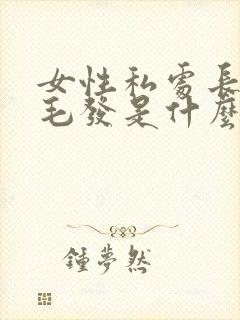 女性私處長
毛發是什麼
鍾夢然